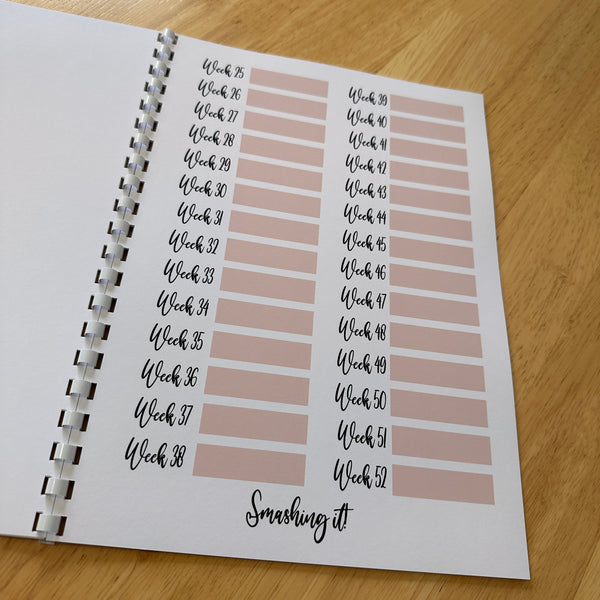 Week 25
Week 26
Week 27
Week 28
Week 29
Week 30
Week 31
Week 32
Week 33
Week 34
Week 35
Week 36
Week 37
Week 38
Week 39
Week 40
Week 41
Week 42
Week 43
Week 44
Week 45
Week 46
Week 47
Week 48
Week 49
Week 50
Week 51
Week 52
Smashing it!